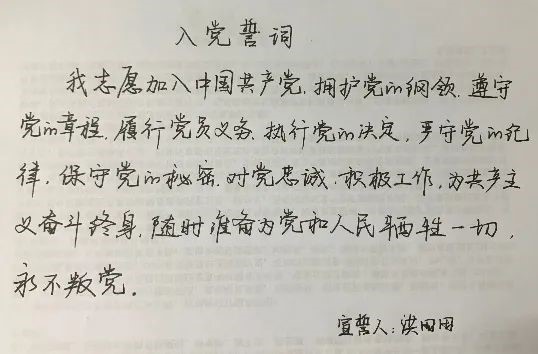 入党誓词
我志愿加入中国共产党,拥护党的纲领.遵守
党的章程.履行党员义务.执行党的决定,严守党的纪
律.保守党的秘密.对党忠诚.积极工作,为共产主
义奋斗终身,随时准备为党和人民牺牲一切,
永不叛党.
宣誓人:洪